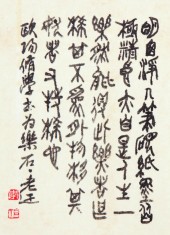 明窗淨几筆硯紙墨皆
極精良亦自是人生一
樂然能得此樂者甚
稀其不為外物移其
好者又特稀也
歐陽修學書為樂